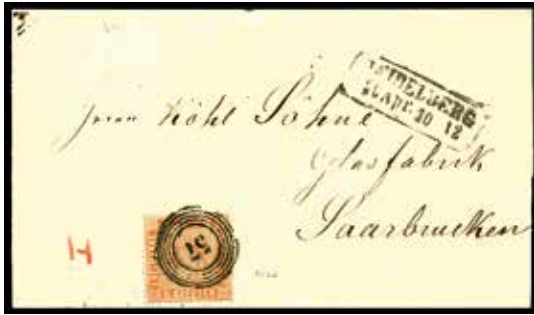 HEIDELBERG
24 Apr. 10 12
Herrn Höhl Söhne
Glasfabrik
Saarbrucken
57